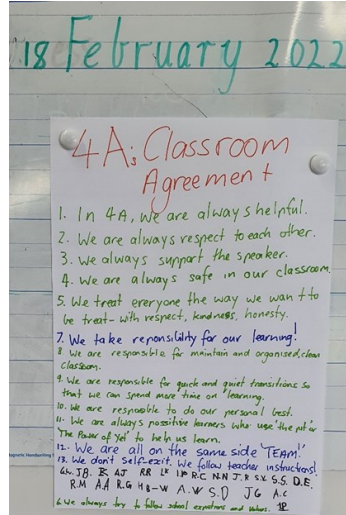 18 February 2022
4A: Classroom
Agreement
1. In 4A, we are always helpful.
2. We are always respect to each other.
3. We always support the speaker.
4. We are always safe in our classroom.
5. We treat everyone the way we want to
be treat- with respect, kindness, honesty.
7. We take reponsibility for our learning!
8. We are responsible for maintain and organised, clean
classroom.
9. We are responsible for quick and quiet transitions so
that we can spend more time on learning.
10. We are responsible to do our personal best.
11. We are always possitive learners who use 'the pit' or
'The Power of Yet' to help us learn.
12. We are all on the same side 'TEAM!'
13. We don't self-exit. We follow teacher instructions!
J.B. AJ RR R.C N.N J.R S.V S.S. D.E.
R.M A.A R.G H.B-W A.W S.D JG A.C
6. We always try to follow school expectations and values.